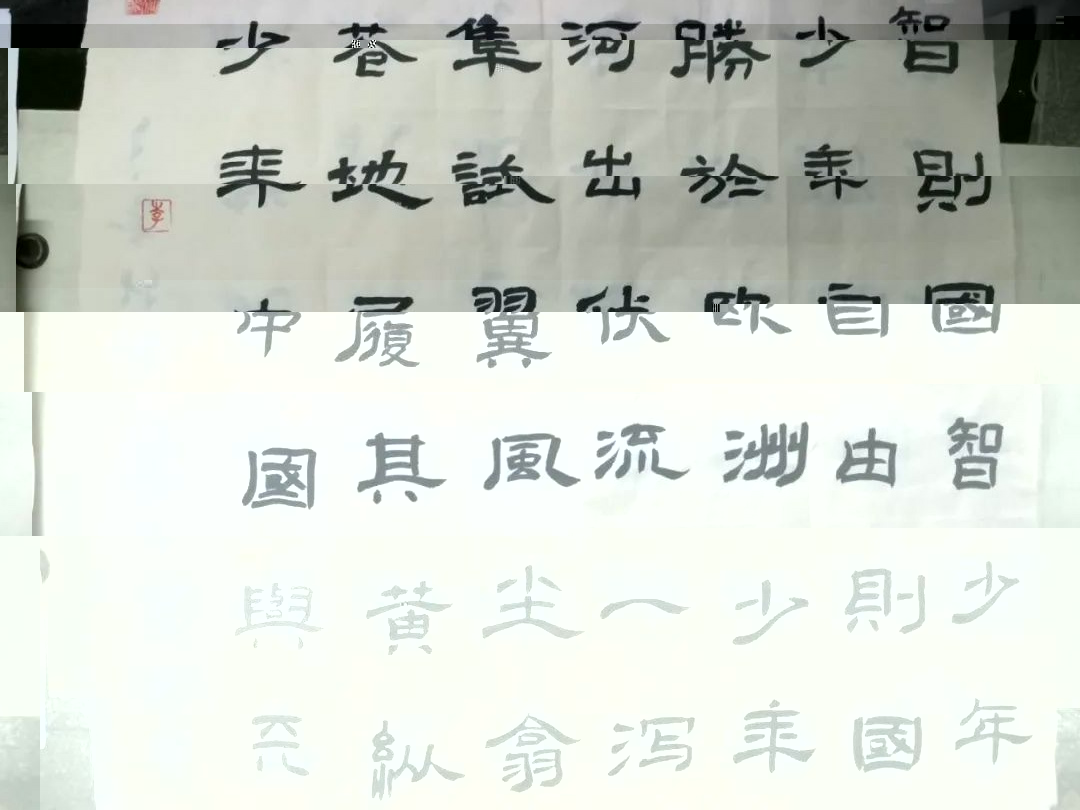 智則國智少年
少年自由則國
勝於欧洲少年
河出伏流一泻
隼試翼風尘翕
苍地履其黄縱
少年中國與天
李